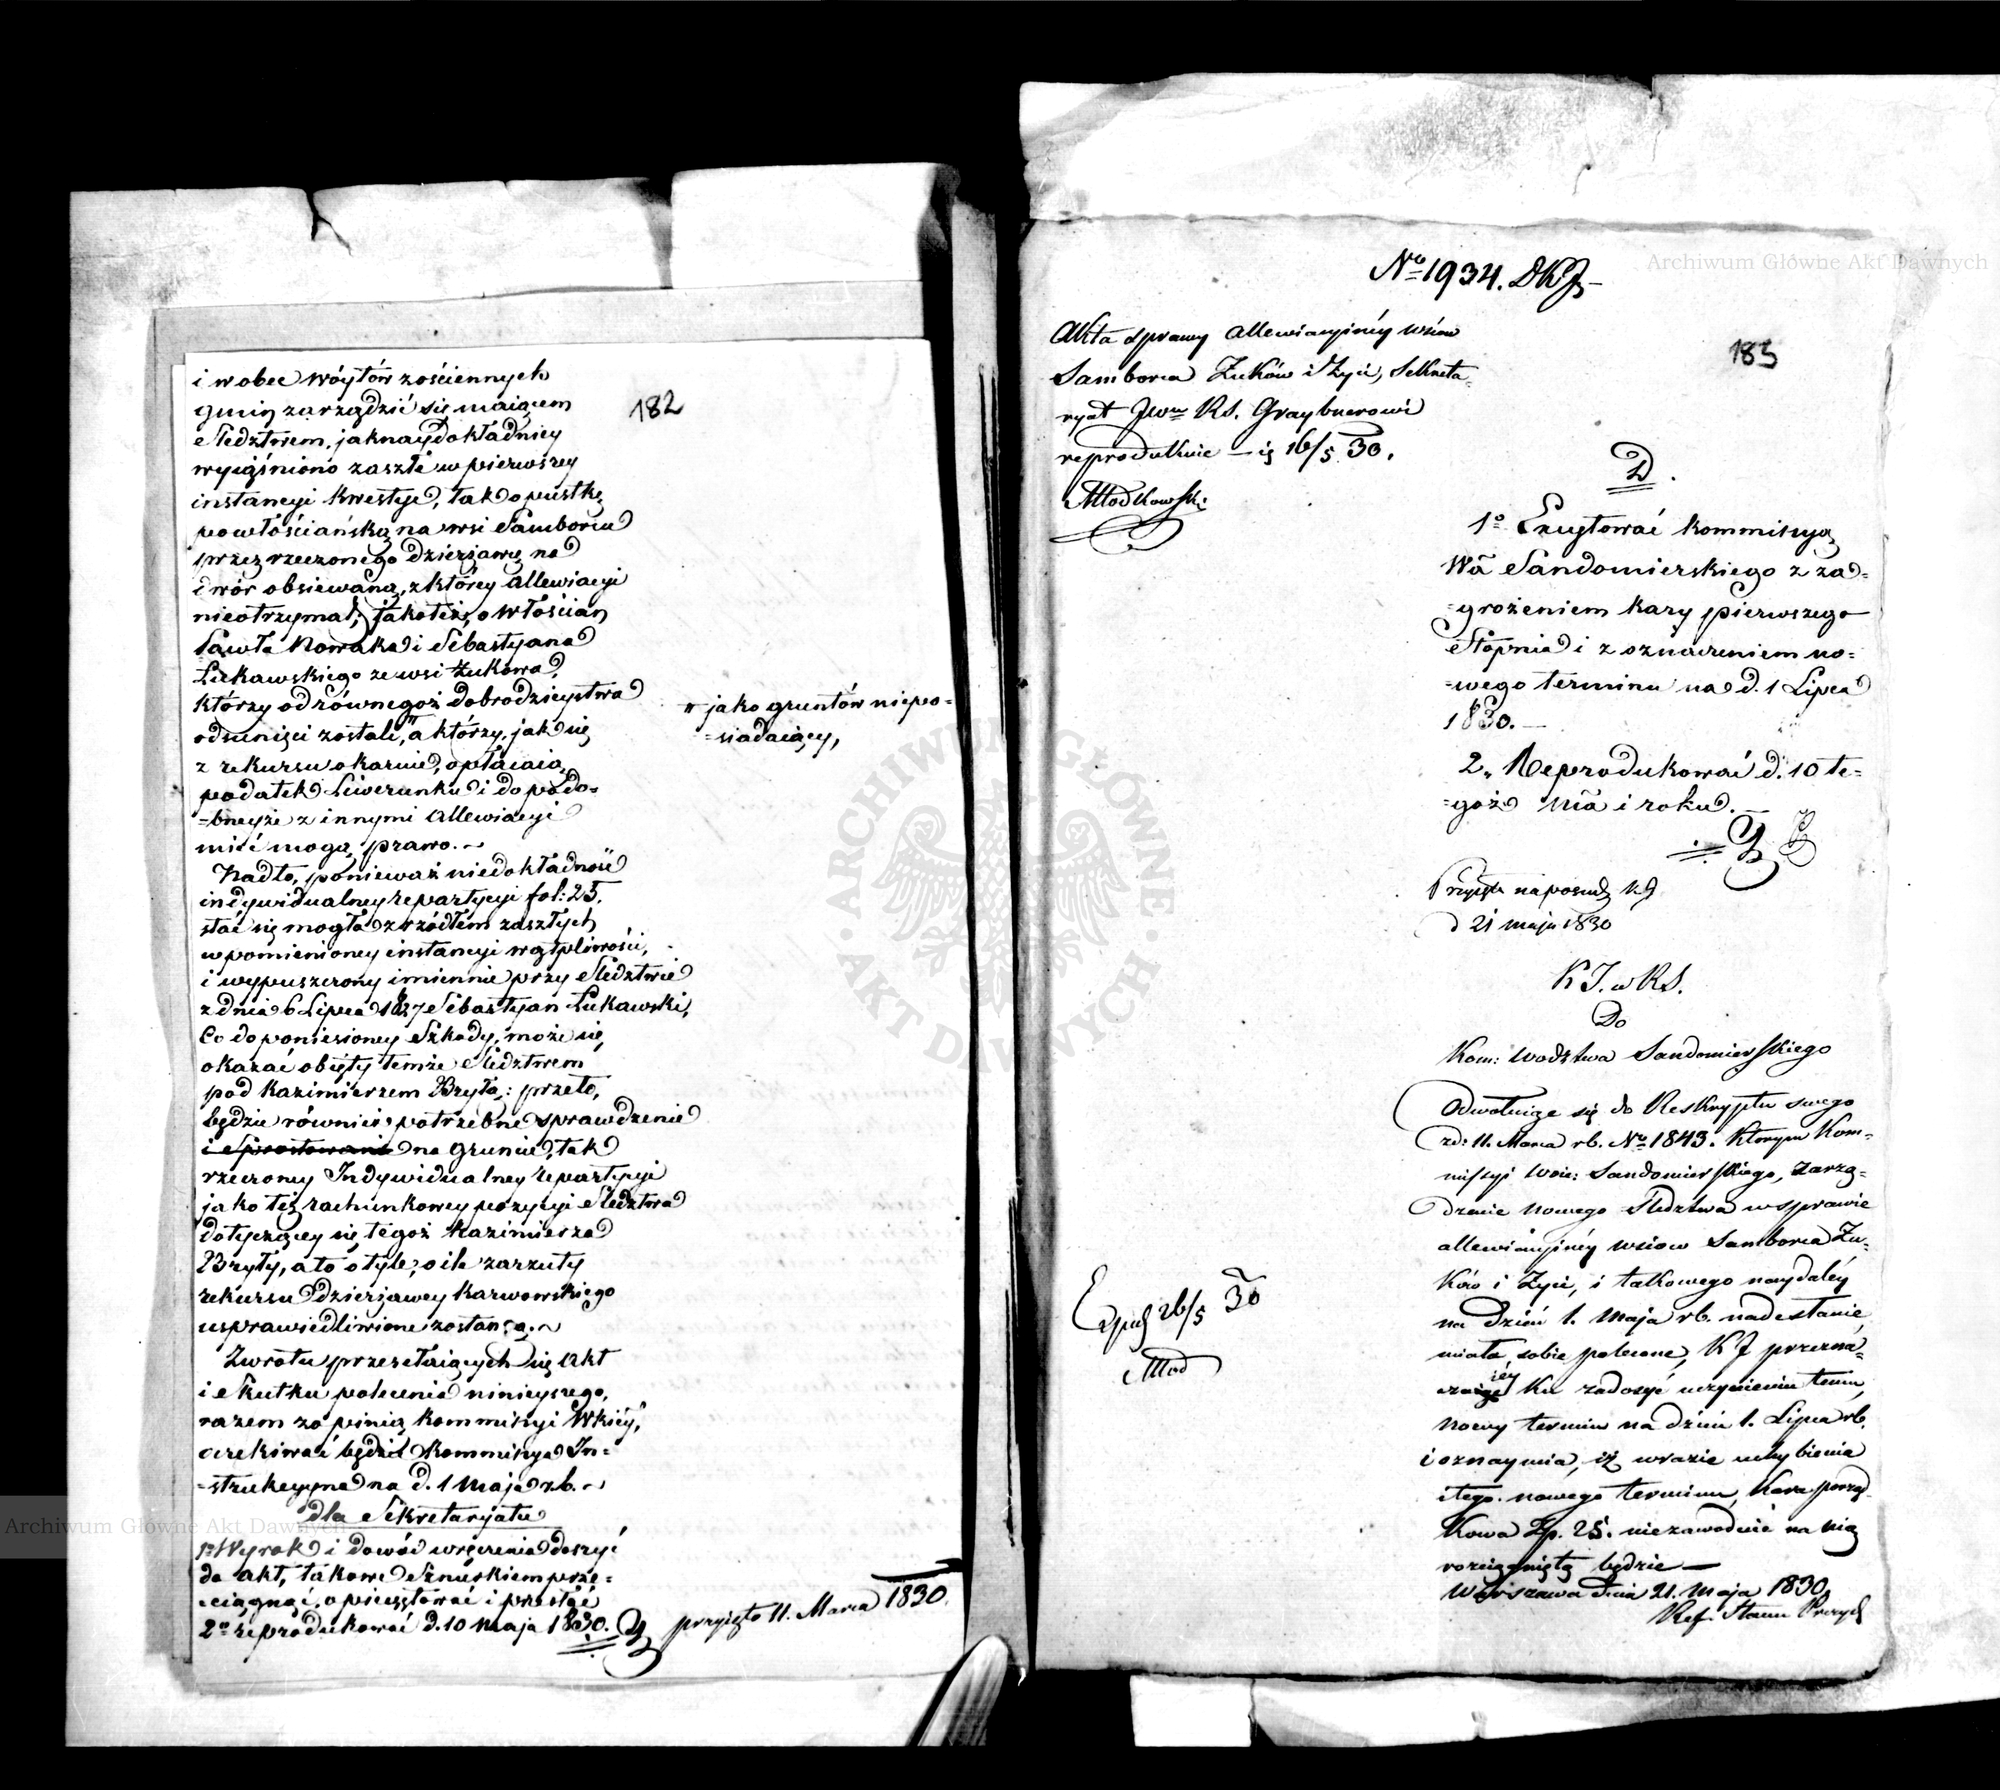 182
i wobec Wóytów zościennych
gmin zarządzić się maiącem
Śledztwem, jaknaydokładniey
wyiaśniono zaszłe w pierwszey
instancyi kwestye, tak o pustkę
po włościańską na wsi Samborcu
przez rzeczonego dzierżawcę na
dwór obsiewaną, z którey allewiacyi
nieotrzymał; jakoteż, o Włościan
Pawła Nowaka i Sebastyana
Łukawskiego ze wsi Żukowa,
którzy od równegoż dobrodzieystwa
odsunięci zostali, " a którzy, jak się
" jako gruntów niepo=
=siadaiący,
z rekursu okazuie, opłacaią
podatek Liwerunku i do podo=
=bneyże z innymi allewiacyi
mieć mogą prawo.
Nadto, ponieważ niedokładność
indywidualney repartycyi fol: 25.
stać się mogła zrzódłem zaszłych
w pomienioney instancyi wątpliwości,
i wypuszczony imiennie przy Śledztwie
z dnia 6 Lipca 1827 Sebastyan Łukawski,
Co do poniesioney Szkody, może się
okazać obięty temże Śledztwem
pod Kazimierzem Bryłą: przeto,
będzie również potrzebne sprawdzenie
i Sprostowanie na gruncie, tak
rzeczoney Indywidualney repartycyi
jako też rachunkowey pozycyi Śledztwa
dotyczącey się tegoż Kazimierza
Bryły, a to o tyle, o ile zarzuty
rekursu dzierżawcy Karwowskiego
usprawiedliwione zostaną.
Zwrotu przesełaiących się Akt
i Skutku polecenia ninieyszego,
razem z opinią Kommissyi Wkiey,
oczekiwać będzie Kommissya In=
=strukcyyna na d. 1 Maja r.b.
dla Sekretaryatu
1º Wyrok i dowód wręczenia doszyć
do akt, takowe Sznurkiem prze=
=ciągnąć, opieczętować i przesłać
2º reprodukować d. 10 Maja 1830.
przyięto 11. Marca 1830.
Nº 1934. DKJ
183
Akta sprawy allewiacyinéy wsiow
Samborca Żuków i Życi, Sekreta=
ryat Jwu RS. Graybnerowi
reprodukuie — ię 16/5 30.
Młodkowski
D.
1º Excytować Kommissyą
Wa Sandomierskiego z za=
=grożeniem kary pierwszego
Stopnia i z oznaczeniem no=
=wego terminu na d. 1 Lipca
1830. —
2. Reprodukować d. 10 te=
=goż ma i roku. —
Przyięte na posiedz KJ
d 21 maja 1830
K J. w RS.
Do
Kom: Wodztwa Sandomierskiego
Odwołuiąc się do Reskryptu swego
zd: 11. Marca rb. Nº 1843. Którym Kom=
missyi Woie: Sandomierskiego, zarzą=
dzenie nowego Śledztwa w sprawie
allewiacyinéy wsiow Samborca Żu=
ków i Życi, i takowego naydaléy
na dzień 1. Maja rb. nadesłanie
miała sobie polecone, KJ przezna=
czaiąc iéy Ku zadosyć uczynieniu temu,
nowy termin na dzień 1. Lipca rb.
i oznaymia, iż w razie uchybienia
i tego nowego terminu, Kara porząd=
Kowa Zp. 25. niezawodnie na nią
rozciągniętą będzie —
Warszawa dnia 21. Maja 1830
Ref. Stanu
26/5 30
Młod